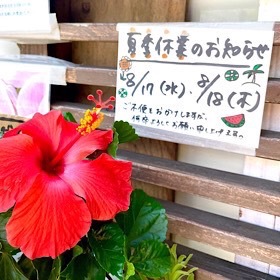 夏季休業のお知らせ
8/17(水)・8/18(木)
ご不便をおかけしますが、
何卒よろしくお願い申し上げます。